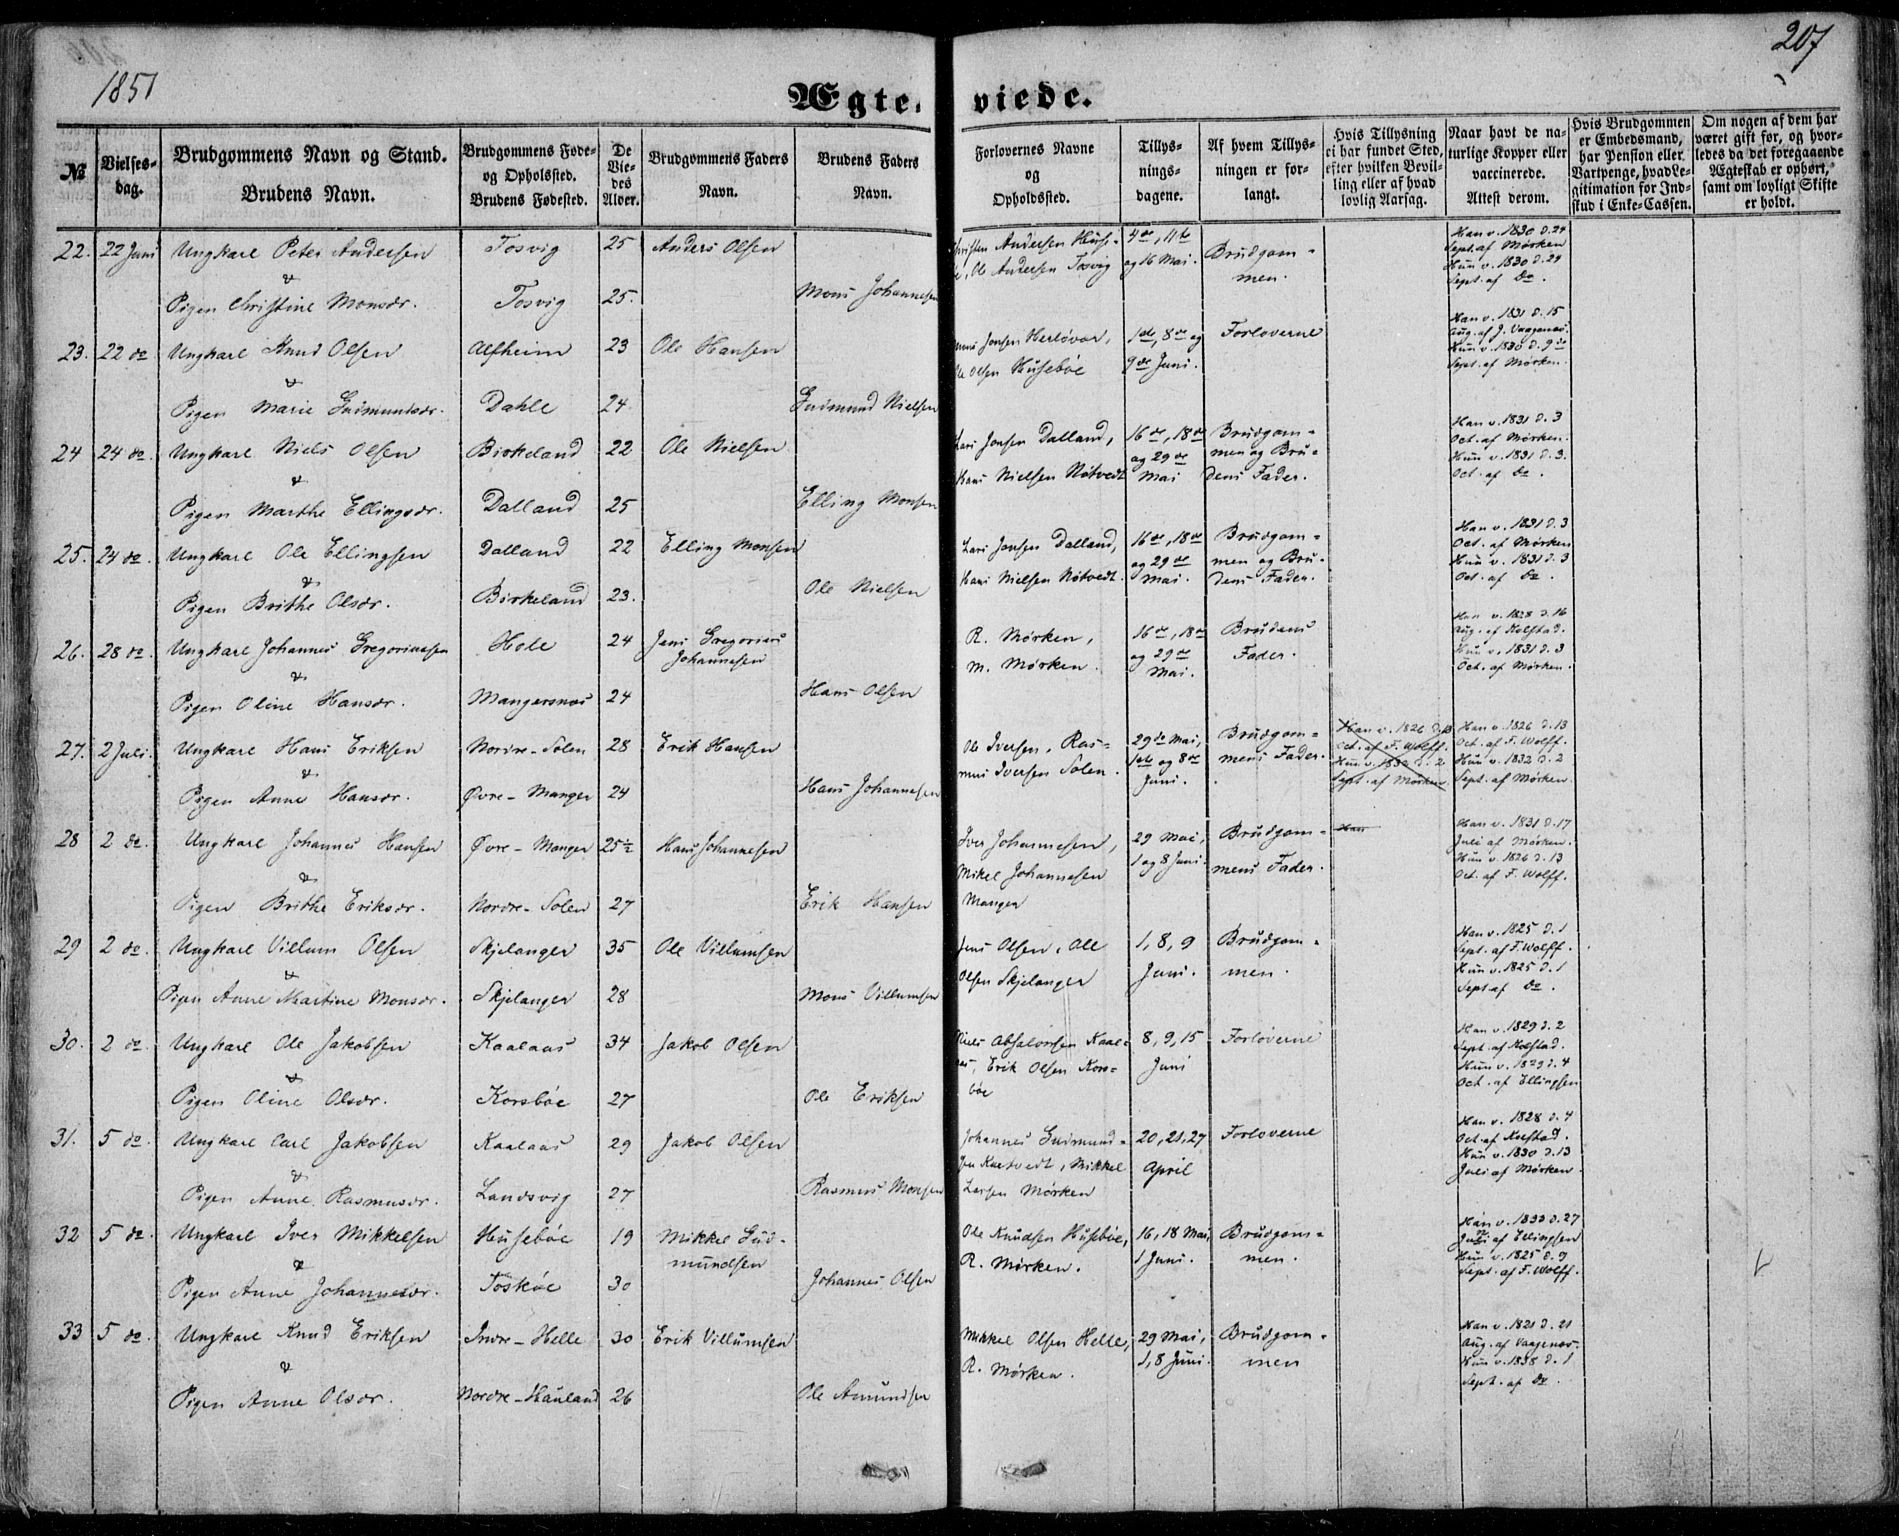 207
1851
Ægteviede.
№ | Vielsesdag. | Brudgommens Navn og Stand. Brudens Navn. | Brudgommens Føde- og Opholsted. Brudens Fødested. | De Viedes Alder. | Brudgommens Faders Navn. | Brudens Faders Navn. | Forlovernes Navne og Opholdssted. | Tillysningsdagene. | Af hvem Tillysningen er forlangt. | Hvis Tillysning ei har fundet Sted, efter hvilken Bevilling eller af hvad lovlig Aarsag. | Naar havt de naturlige Kopper eller vaccinerede. Attest derom. | Hvis Brudgommen er Embedsmand, har Pension eller Vartpenge, hvad Legitimation for Indskud i Enke-Cassen. | Om nogen af dem har været gift før, og hvorledes da det foregaaende Ægteskab er ophørt, samt om lovligt Skifte er holdt.
22. | 22 Juni | Ungkarl Peter Andersen | Tosvig | 25 | Anders Olsen | Christen Andersen Huse-, Ole Andersen Tosvig | 4de, 11te og 16 Mai. | Brudgommen. | Han v. 1830 d. 24 Sept. af Mørken Hun v. 1830 d. 24 Sept. af do.
&
Pigen Christine Monsdr. | Tosvig | 25. | Mons Johannesen
23. | 22 do | Ungkarl Knud Olsen | Alfheim | 23 | Ole Hansen | Jensen Herløvær, Ole Olsen Husebøe | 1ste, 8de og 9de Juni. | Forloverne | Han v. 1831 d. 15 Aug. af J. Vaagenæs. Hun v. 1830 d. 9de Sept. af Mørken.
&
Pigen Marie Gudmundsdr. | Dahle | 24. | Gudmund Nielsen
24 | 24 do. | Ungkarl Niels Olsen | Birkeland | 22 | Ole Nielsen | Lars Jensen Dalland, Hans Nielsen Nøtvedt | 16de, 18de og 29de Mai | Brudgommen og Brudens Fader. | Han v. 1831 d. 3 Oct. af Mørken. Hun v. 1831 d. 3. Oct. af do.
&
Pigen Marthe Ellingsdr. | Dalland | 25 | Elling Monsen
25. | 24 do. | Ungkarl Ole Ellingsen | Dalland | 22 | Elling Monsen | Lars Jensen Dalland, Hans Nielsen Nøtvedt. | 16de, 18de og 29de Mai. | Brudgommen og Brudens Fader. | Han v. 1831 d. 3 Oct. af Mørken Hun v. 1831 d. 3 Oct. af do.
&
Pigen Brithe Olsdr. | Birkeland | 23. | Ole Nielsen
26. | 28 do. | Ungkarl Johannes Gregoriussen | Hole | 24 | Jens Gregorius Johannesen | R. Mørken, M. Mørken. | 16de, 18de og 29de Mai. | Brudens Fader. | Han v. 1828 d. 16 Aug. af Kolstad. Hun v. 1831 d. 3 Oct. af Mørken.
&
Pigen Oline Hansdr. | Mangersnæs | 24 | Hans Olsen
27. | 2 Juli. | Ungkarl Hans Eriksen | Nordre-Solen | 28 | Erik Hansen | Ole Iversen, Rasmus Iversen Solen. | 29de Mai, 1ste og 8de Juni. | Brudgommens Fader. | Han v. 1826 d. 13 Oct. af F. Wolff. Hun v. 1832 d. 2 Sept. af Mørken | Han v. 1826 d. 13 Oct. af F. Wolff. Hun v. 1832 d. 2 Sept. af Mørken.
&
Pigen Anne Hansdr. | Øvre-Manger | 24 | Hans Johannesen
28 | 2 do. | Ungkarl Johannes Hansen | Øvre-Manger | 25½ | Hans Johannesen | Iver Johannesen, Mikel Johannesen Manger | 29 Mai, 1 og 8 Juni. | Brudgommens Fader. | Han | Han v. 1831 d. 17 Juli af Mørken. Hun v. 1826 d. 13 Oct. af F. Wolff.
&
Pigen Brithe Eriksdr. | Nordre-Solen | 27 | Erik Hansen
29 | 2 do. | Ungkarl Villum Olsen | Skjelanger | 35 | Ole Villumsen | Jens Olsen, Ole Olsen Skjelanger | 1, 8, 9 Juni. | Brudgommen. | Han v. 1825 d. 1 Sept. af F. Wolff. Hun v. 1825 d. 1 Sept. af do.
&
Pigen Anne Martine Monsdr. | Skjelanger | 28 | Mons Villumsen
30. | 2 do. | Ungkarl Ole Jakobsen | Kaalaas | 34 | Jakob Olsen | Niels Absalonsen Kaalaas, Erik Olsen Korsbøe | 8, 9, 15 Juni | Forloverne | Han v. 1829 d. 2 Sept. af Kolstad. Hun v. 1829 d. 4 Oct. af Ellingsen
&
Pigen Oline Olsdr. | Korsbøe | 27 | Ole Eriksen
31. | 5 do. | Ungkarl Carl Jakobsen | Kaalaas | 29 | Jakob Olsen | Johannes Gudmundsen Kartvedt, Mikkel Larsen Mørken | 20, 21, 27 April | Forloverne | Han v. 1828 d. 4 Oct. af Kolstad. Hun v. 1830 d. 13 Juli af Mørken.
&
Pigen Anne Rasmusdr. | Landsvig | 27 | Rasmus Monsen
32 | 5 do. | Ungkarl Iver Mikkelsen | Husebøe | 19 | Mikkel Gudmundsen | Ole Knudsen Husebøe, R. Mørken. | 16, 18 Mai, 1 Juni. | Brudgommen. | Han v. 1833 d. 27 Juli af Ellingsen Hun v. 1825 d. 9 Sept. af F. Wolff.
&
Pigen Anne Johannesdr. | Toskøe | 30 | Johannes Olsen
33 | 5 do. | Ungkarl Knud Eriksen | Indre-Helle | 30 | Erik Villumsen | Mikkel Olsen Helle, R. Mørken. | 29 Mai, 1, 8 Juni. | Brudgommen | Han v. 1821 d. 21 Aug. af Vaagenæs. Hun v. 1838 d. 1 Sept. af do.
&
Pigen Anne Olsdr. | Nordre-Hauland | 26 | Ole Amundsen